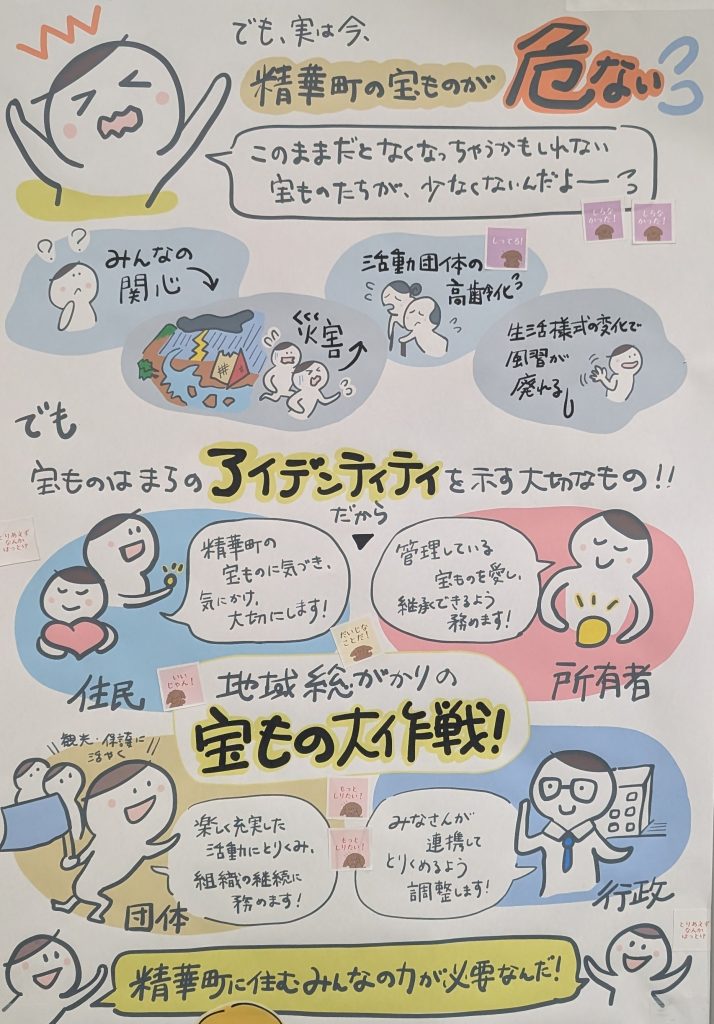 でも、実は今、
精華町の宝ものが
危ない
このままだとなくなっちゃうかもしれない
宝ものたちが、少なくないんだよー
しらなかった!
しらなかった!
しってる!
みんなの
関心
災害
活動団体の
高齢化
生活様式の変化で
風習が
廃れる
でも
宝ものはまちのアイデンティティを示す大切なもの!!
だから
とりあえず
なんか
はっとけ
精華町の
宝ものに気づき、
気にかけ、
大切にします!
管理している
宝ものを愛し、
継承できるよう
務めます!
住民
所有者
いいじゃん!
だいじな
ことだ!
地域総がかりの
宝もの大作戦!
観光・保護に
活やく
楽しく充実した
活動にとりくみ、
組織の継続に
務めます!
団体
もっと
しりたい!
もっと
しりたい!
みなさんが
連携して
とりくめるよう
調整します!
行政
とりあえず
なんか
はっとけ
精華町に住むみんなの力が必要なんだ!